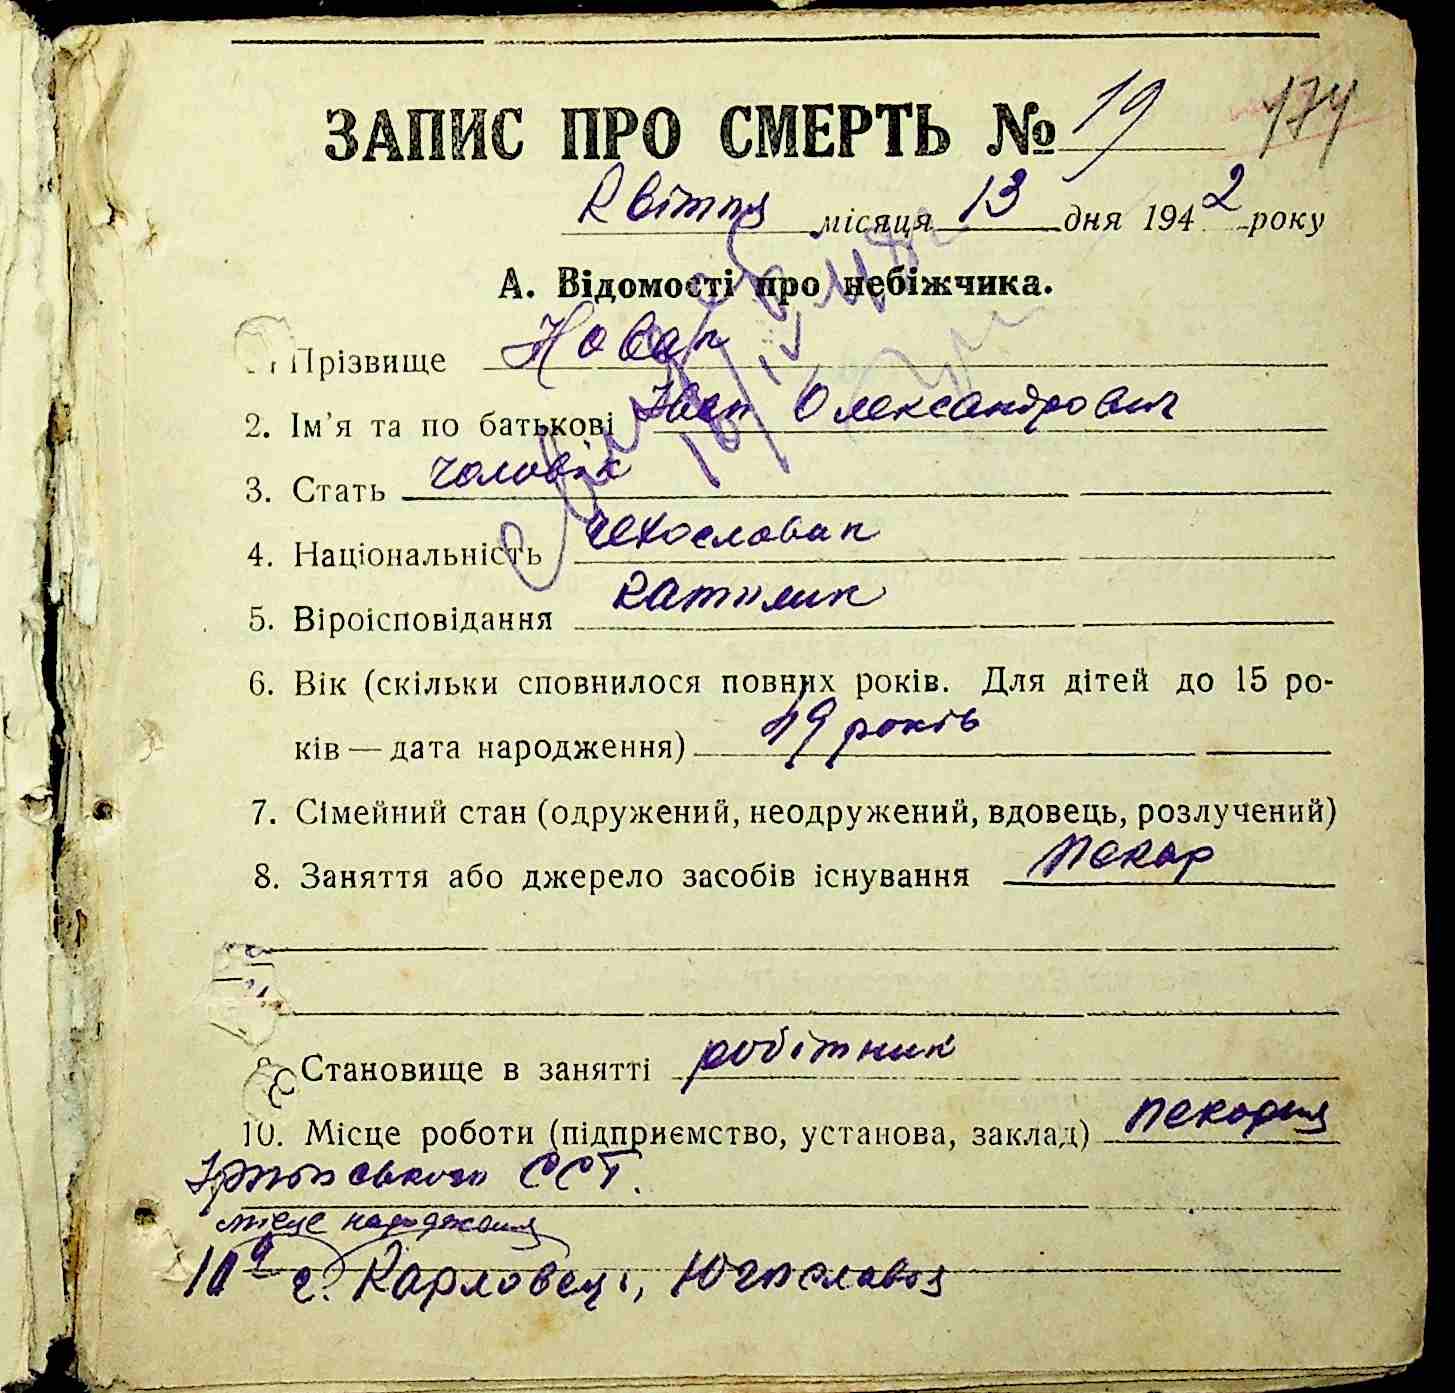 174
ЗАПИС ПРО СМЕРТЬ № 19
Квітня місяця 13 дня 1942 року
А. Відомості про небіжчика.
Прізвище Новак
2. Ім'я та по батькові Іван Олександрович
3. Стать чоловік
4. Національність чехословак
5. Віроісповідання католик
6. Вік (скільки сповнилося повних років. Для дітей до 15 ро-
ків — дата народження) 49 років
7. Сімейний стан (одружений, неодружений, вдовець, розлучений)
8. Заняття або джерело засобів існування пекар
Становище в занятті робітник
10. Місце роботи (підприємство, установа, заклад) пекарня
Ірпінського ССТ.
місце народження
10а с. Карловеці, Югославія